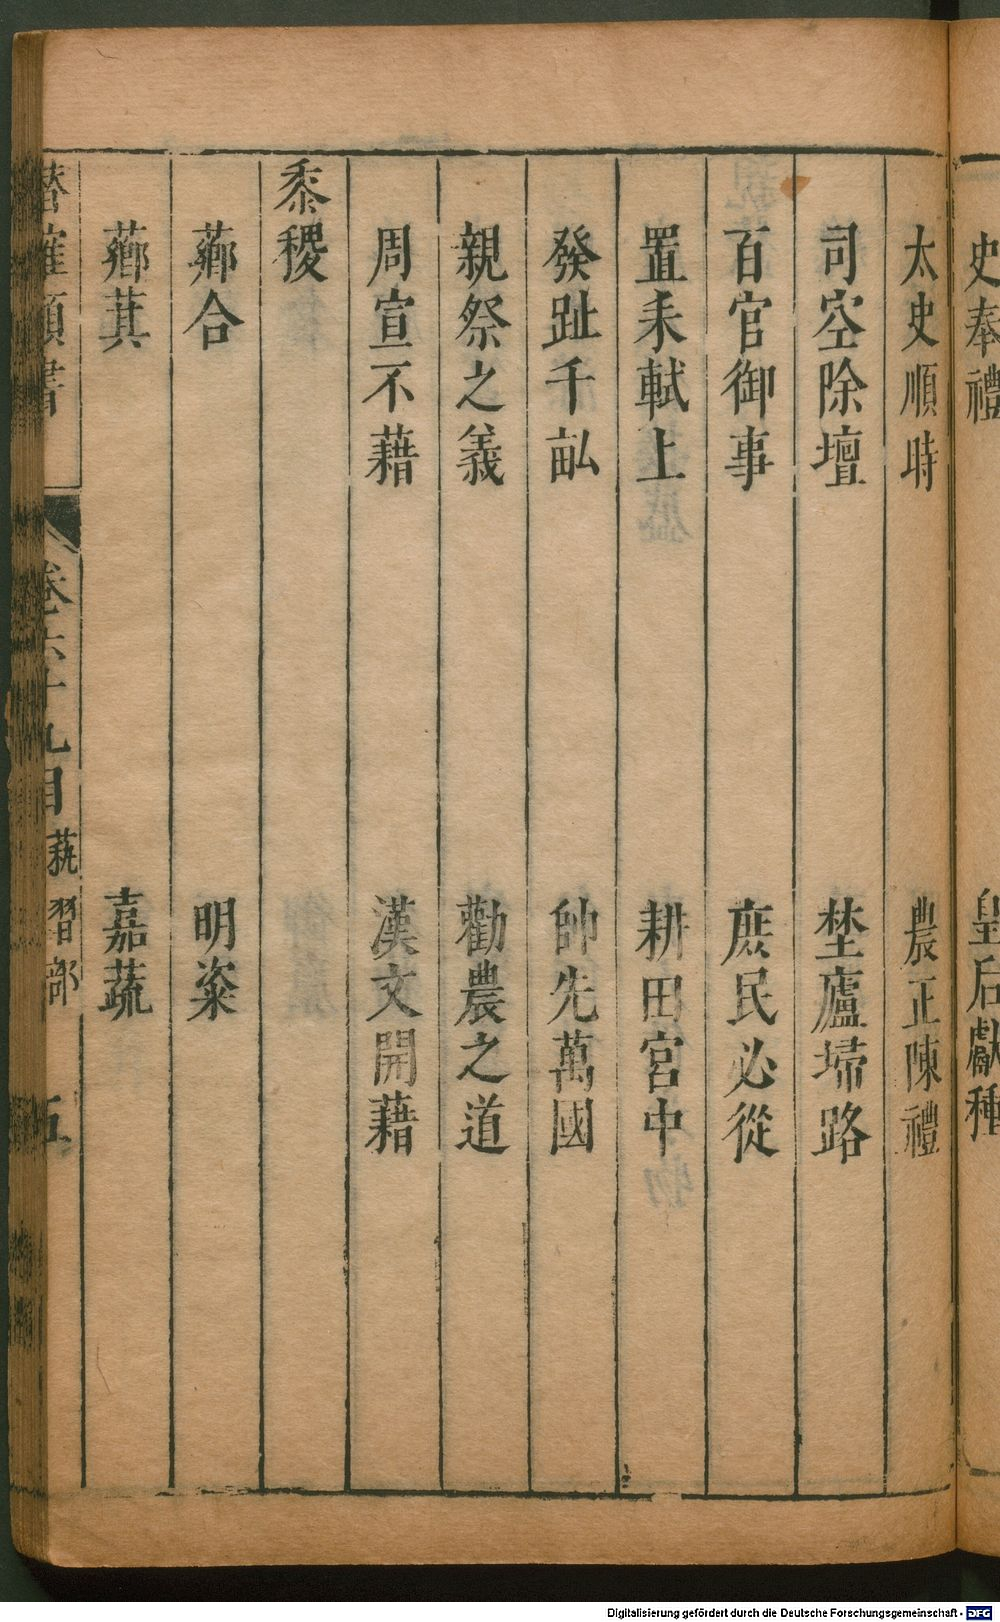 史奉禮　皇后獻種
太史順時　農正陳禮
司空除壇　埜廬埽路
百官御事　庶民必從
置耒軾上　耕田宮中
發趾千畆　帥先萬國
親祭之義　勸農之道
周宣不藉　漢文開藉
黍稷
薌合　明粢
薌萁　嘉蔬
潛確類書　卷六十九目　藝習部　五
Digitalisierung gefördert durch die Deutsche Forschungsgemeinschaft - DFG